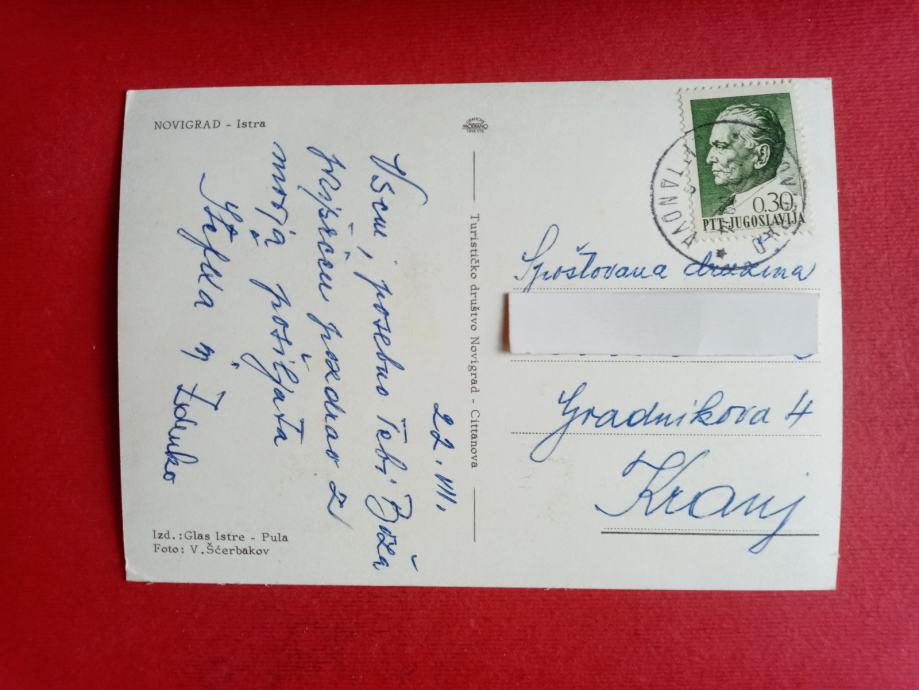 NOVIGRAD - Istra
22. VII.
Vsem, posebno Tebi Boža
prisrčen pozdrav z
morja pošiljata
Štefka in Zdenko
Izd.: Glas Istre - Pula
Foto: V. Šćerbakov
Turističko društvo Novigrad - Cittanova
0.30
PTT JUGOSLAVIJA
Spoštovana družina
Gradnikova 4
Kranj